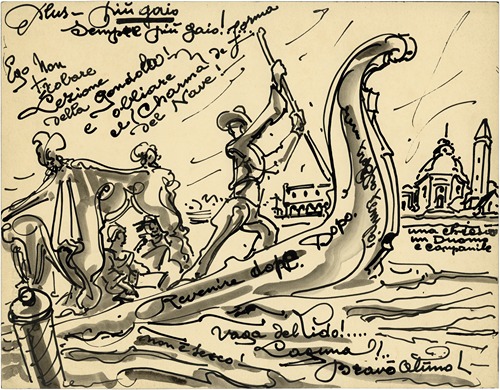 Plus - più gaio
Sempre più gaio! forma
Ego Non
trobare
Lezione
della Gondola!
e obliare de
el Charma
del Nave!
una chiesa
un Duomo
e campanile
Dopo.
Revenire dopo.
Vaga del lido!....
non è secco!
Laguna!!..
Bravo